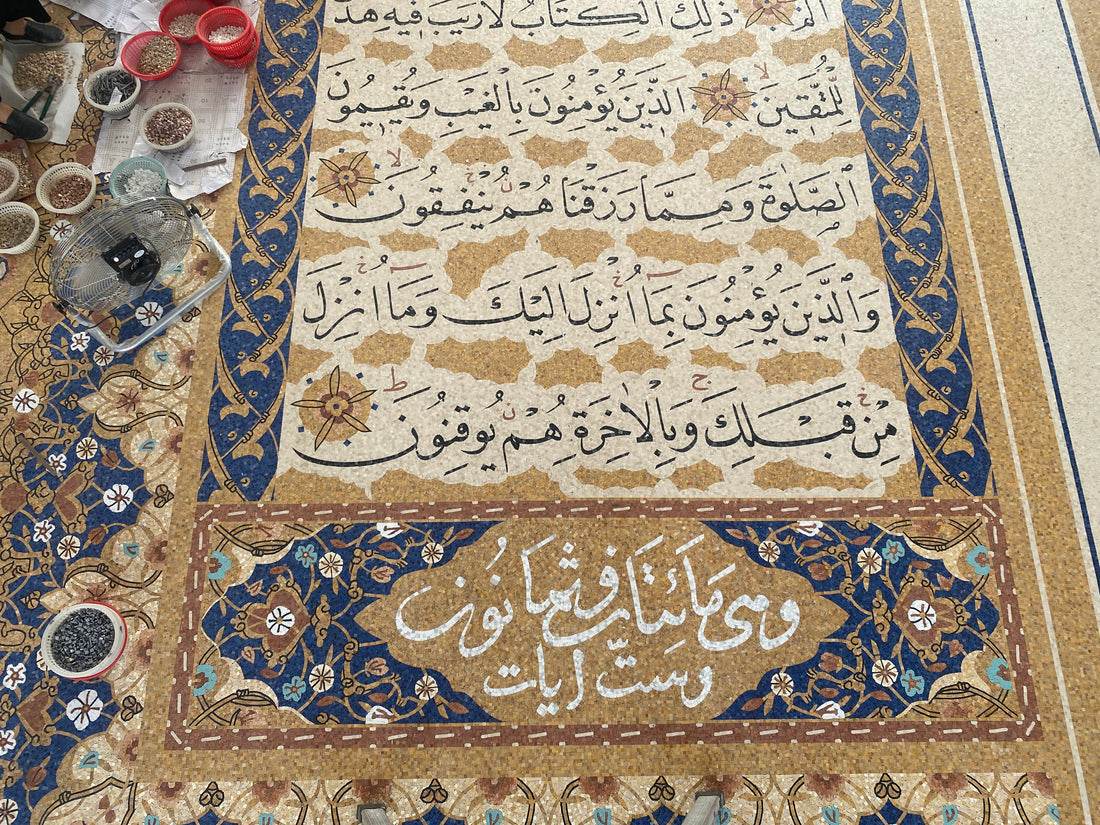 الم ذلِكَ الْكِتَابُ لَارَيْبَ فِيهِ هُدًى
لِلْمُتَّقِينَ لا اَلَّذِينَ يُؤْمِنُونَ بِالْغَيْبِ وَيُقِيمُونَ
الصَّلٰوةَ وَمِمَّا رَزَقْنَا هُمْ يُنْفِقُونَ لا
وَالَّذِينَ يُؤْمِنُونَ بِمَا اُنْزِلَ اِلَيْكَ وَمَا اُنْزِلَ
مِنْ قَبْلِكَ ج وَبِالْاٰخِرَةِ هُمْ يُوقِنُونَ ط
وهى مائتان وثمانون
وستّ ايات